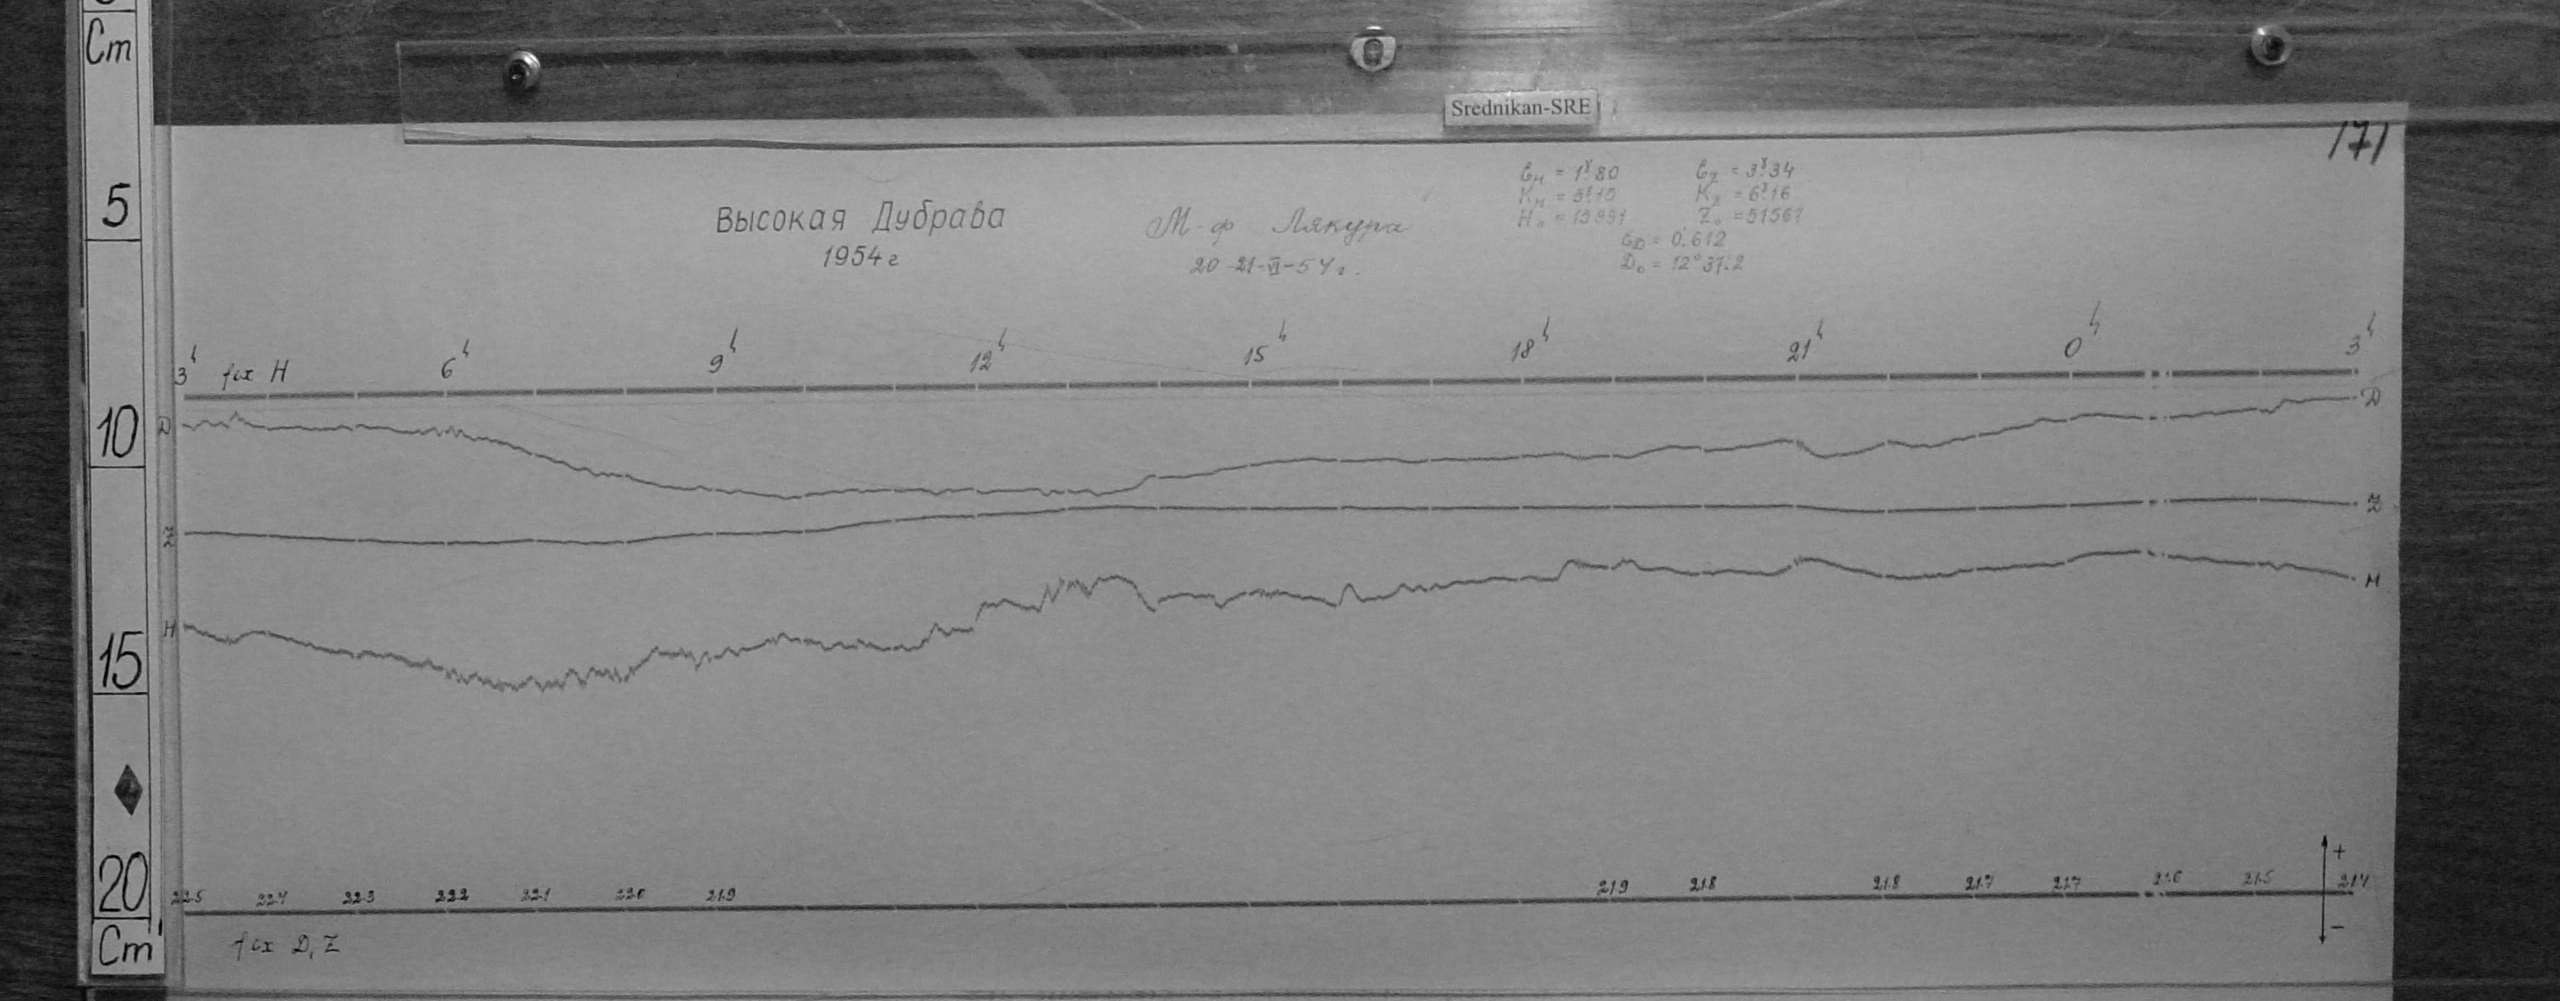 Cm
5
10
15
20
Cm
Srednikan-SRE
171
Высокая Дубрава
1954 г
М-ф Лякура
20-21-VI-54 г.
Ɛн = 1ˠ.80
Ɛz = 3ˠ.34
Kz = 6ˠ.16
Z₀ = 51567
ƐD = 0'.612
D₀ = 12°37'.2
3ʰ fix H 6ʰ 9ʰ 12ʰ 15ʰ 18ʰ 21ʰ 0ʰ 3ʰ
D D
Z Z
H H
22.5 22.4 22.3 22.2 22.1 22.0 21.9 21.9 21.8 21.8 21.7 21.7 21.6 21.5 21.4
+
−
fix D, Z